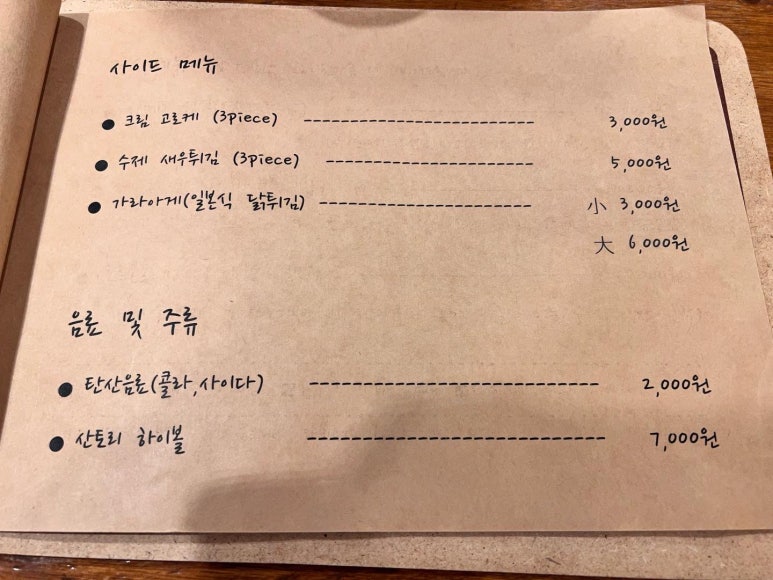 사이드 메뉴
● 크림 고로케 (3piece) ------------------------ 3,000원
● 수제 새우튀김 (3piece) --------------------- 5,000원
● 가라아게(일본식 닭튀김) --------------------- 小 3,000원
大 6,000원
음료 및 주류
● 탄산음료(콜라,사이다) -------------------------- 2,000원
● 산토리 하이볼 --------------------------- 7,000원